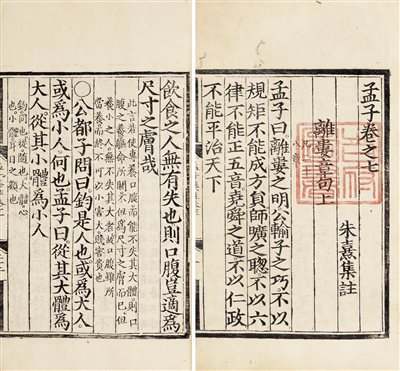 孟子卷之七
朱熹集註
離婁章句上
八章
孟子曰離婁之明公輸子之巧不以
規矩不能成方員師曠之聰不以六
律不能正五音堯舜之道不以仁政
不能平治天下
飲食之人無有失也則口腹豈適為
尺寸之膚哉
此言若使專養口腹而能不失其大體則口
腹之養軀命所關不但為尺寸之膚而已但
養小之人無不失其大者故口腹雖所
當養而終不可以小害大賤害貴也
○公都子問曰鈞是人也或為大人
或為小人何也孟子曰從其大體為
大人從其小體為小人
鈞同也從隨也大體心
也小體耳目之類也